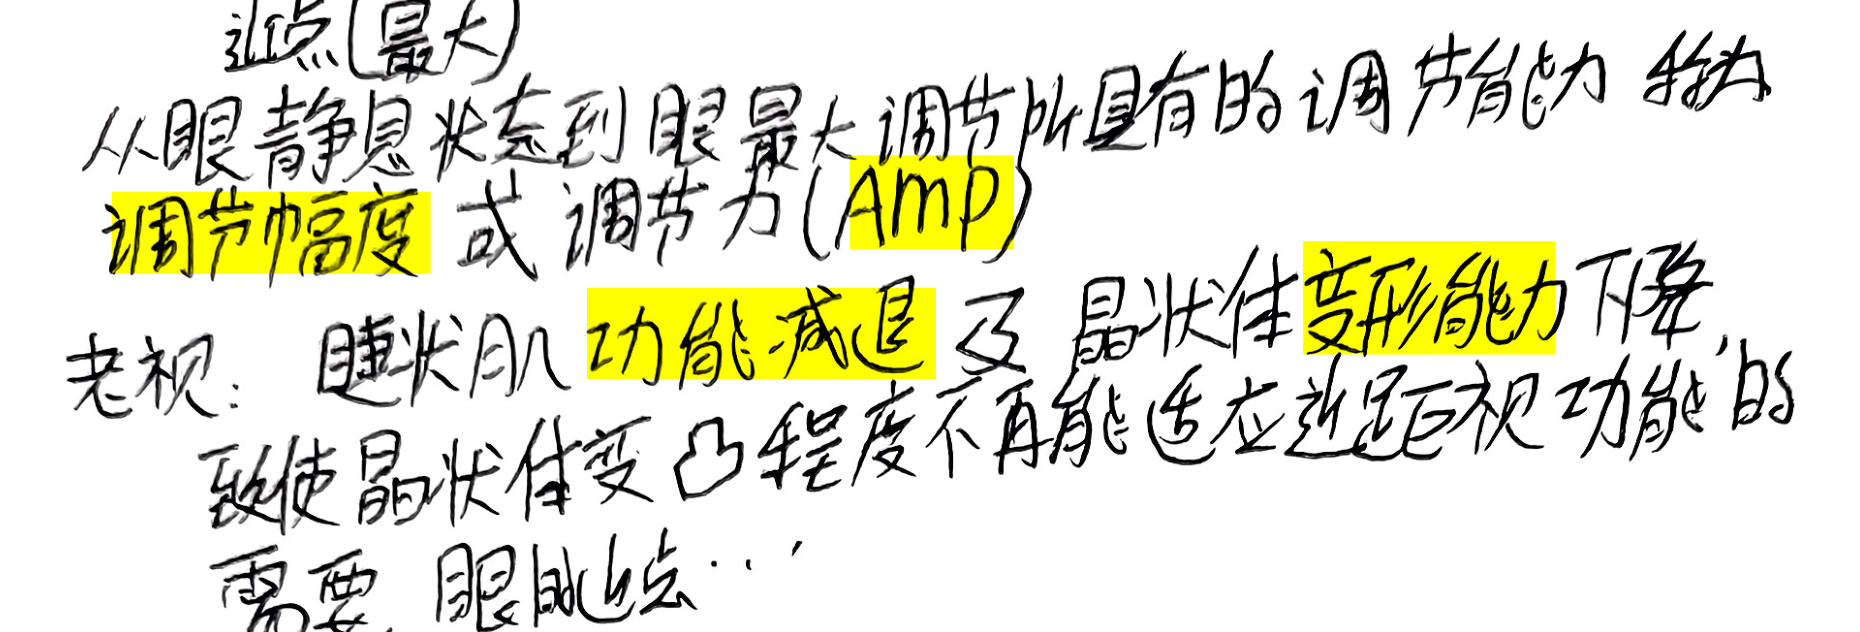 近点(最大)
从眼静息状态到眼最大调节所具有的调节能力 称为
调节幅度 或 调节力(Amp)
老视: 睫状肌功能减退 及 晶状体变形能力下降,
致使晶状体变凸程度不再能适应近距视功能的
需要, 眼的近点···